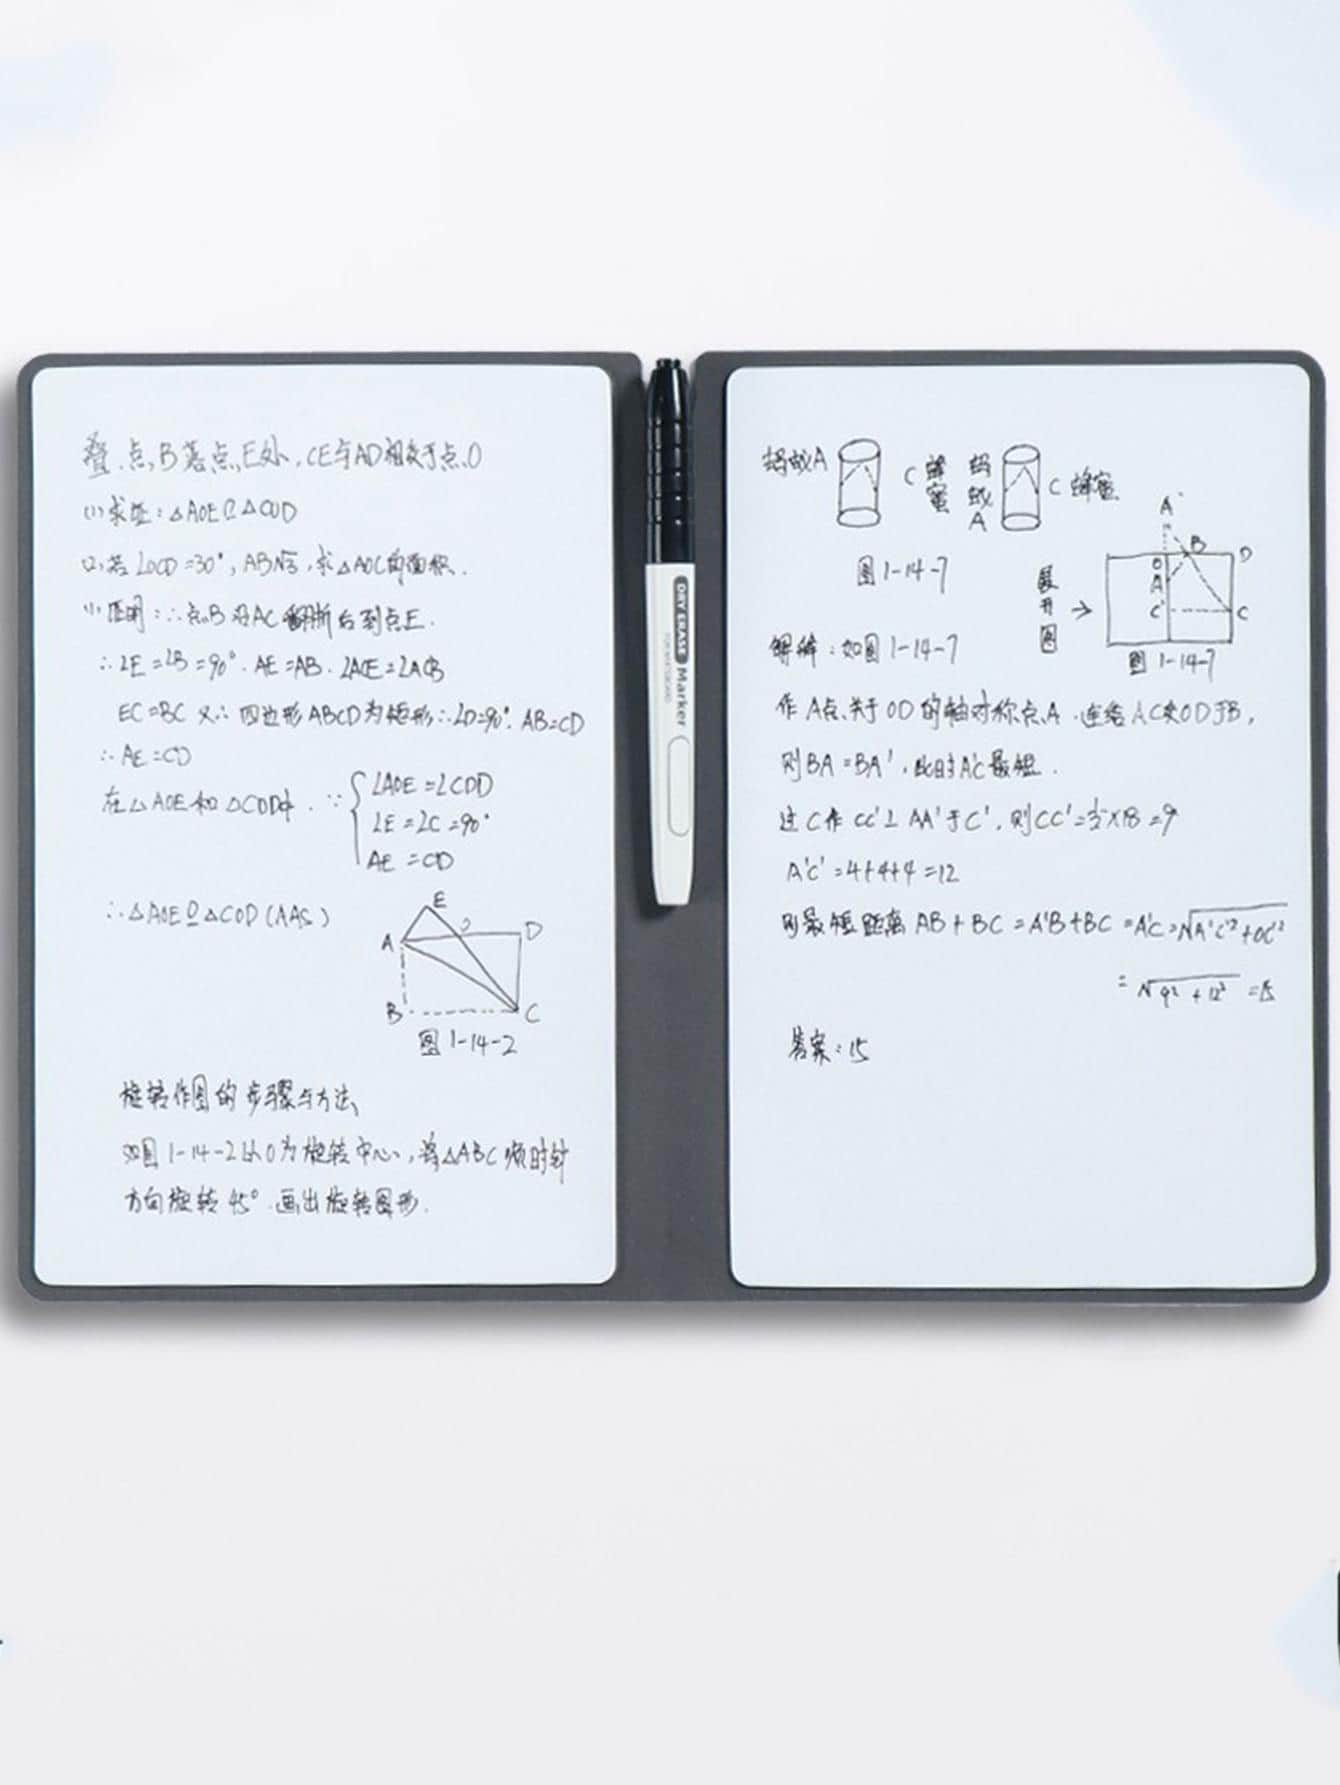 叠.点B落点E处,CE与AD相交于点O
(1)求证:△AOE≌△COD
(2)若∠OCD=30°,AB=√3,求△AOC的面积.
(1)证明:∵点B沿AC翻折后到点E.
∴∠E=∠B=90°.AE=AB.∠ACE=∠ACB
EC=BC 又∵四边形ABCD为矩形∴∠D=90°.AB=CD
∴AE=CD
在△AOE和△COD中.∵
∠AOE=∠COD
∠E=∠C=90°
AE=CD
∴△AOE≌△COD(AAS)
E
A
O
D
B
C
图1-14-2
旋转作图的步骤与方法
如图1-14-2以O为旋转中心,将△ABC顺时针
方向旋转45°.画出旋转图形.
DRY ERASE Marker
蚂蚁A
C 蜂蜜
蚂蚁A
C 蜂蜜
图1-14-7
展开图→
A'
B
D
O
A
C'
C
图1-14-7
解释:如图1-14-7
作A点关于OD的轴对称点A.连结AC交OD于B,
则BA=BA',此时A'C最短.
过C作CC'⊥AA'于C',则CC'=½×18=9
A'C'=4+4+4=12
则最短距离AB+BC=A'B+BC=A'C=√A'C'²+CC'²
=√9²+12²=15
答案:15